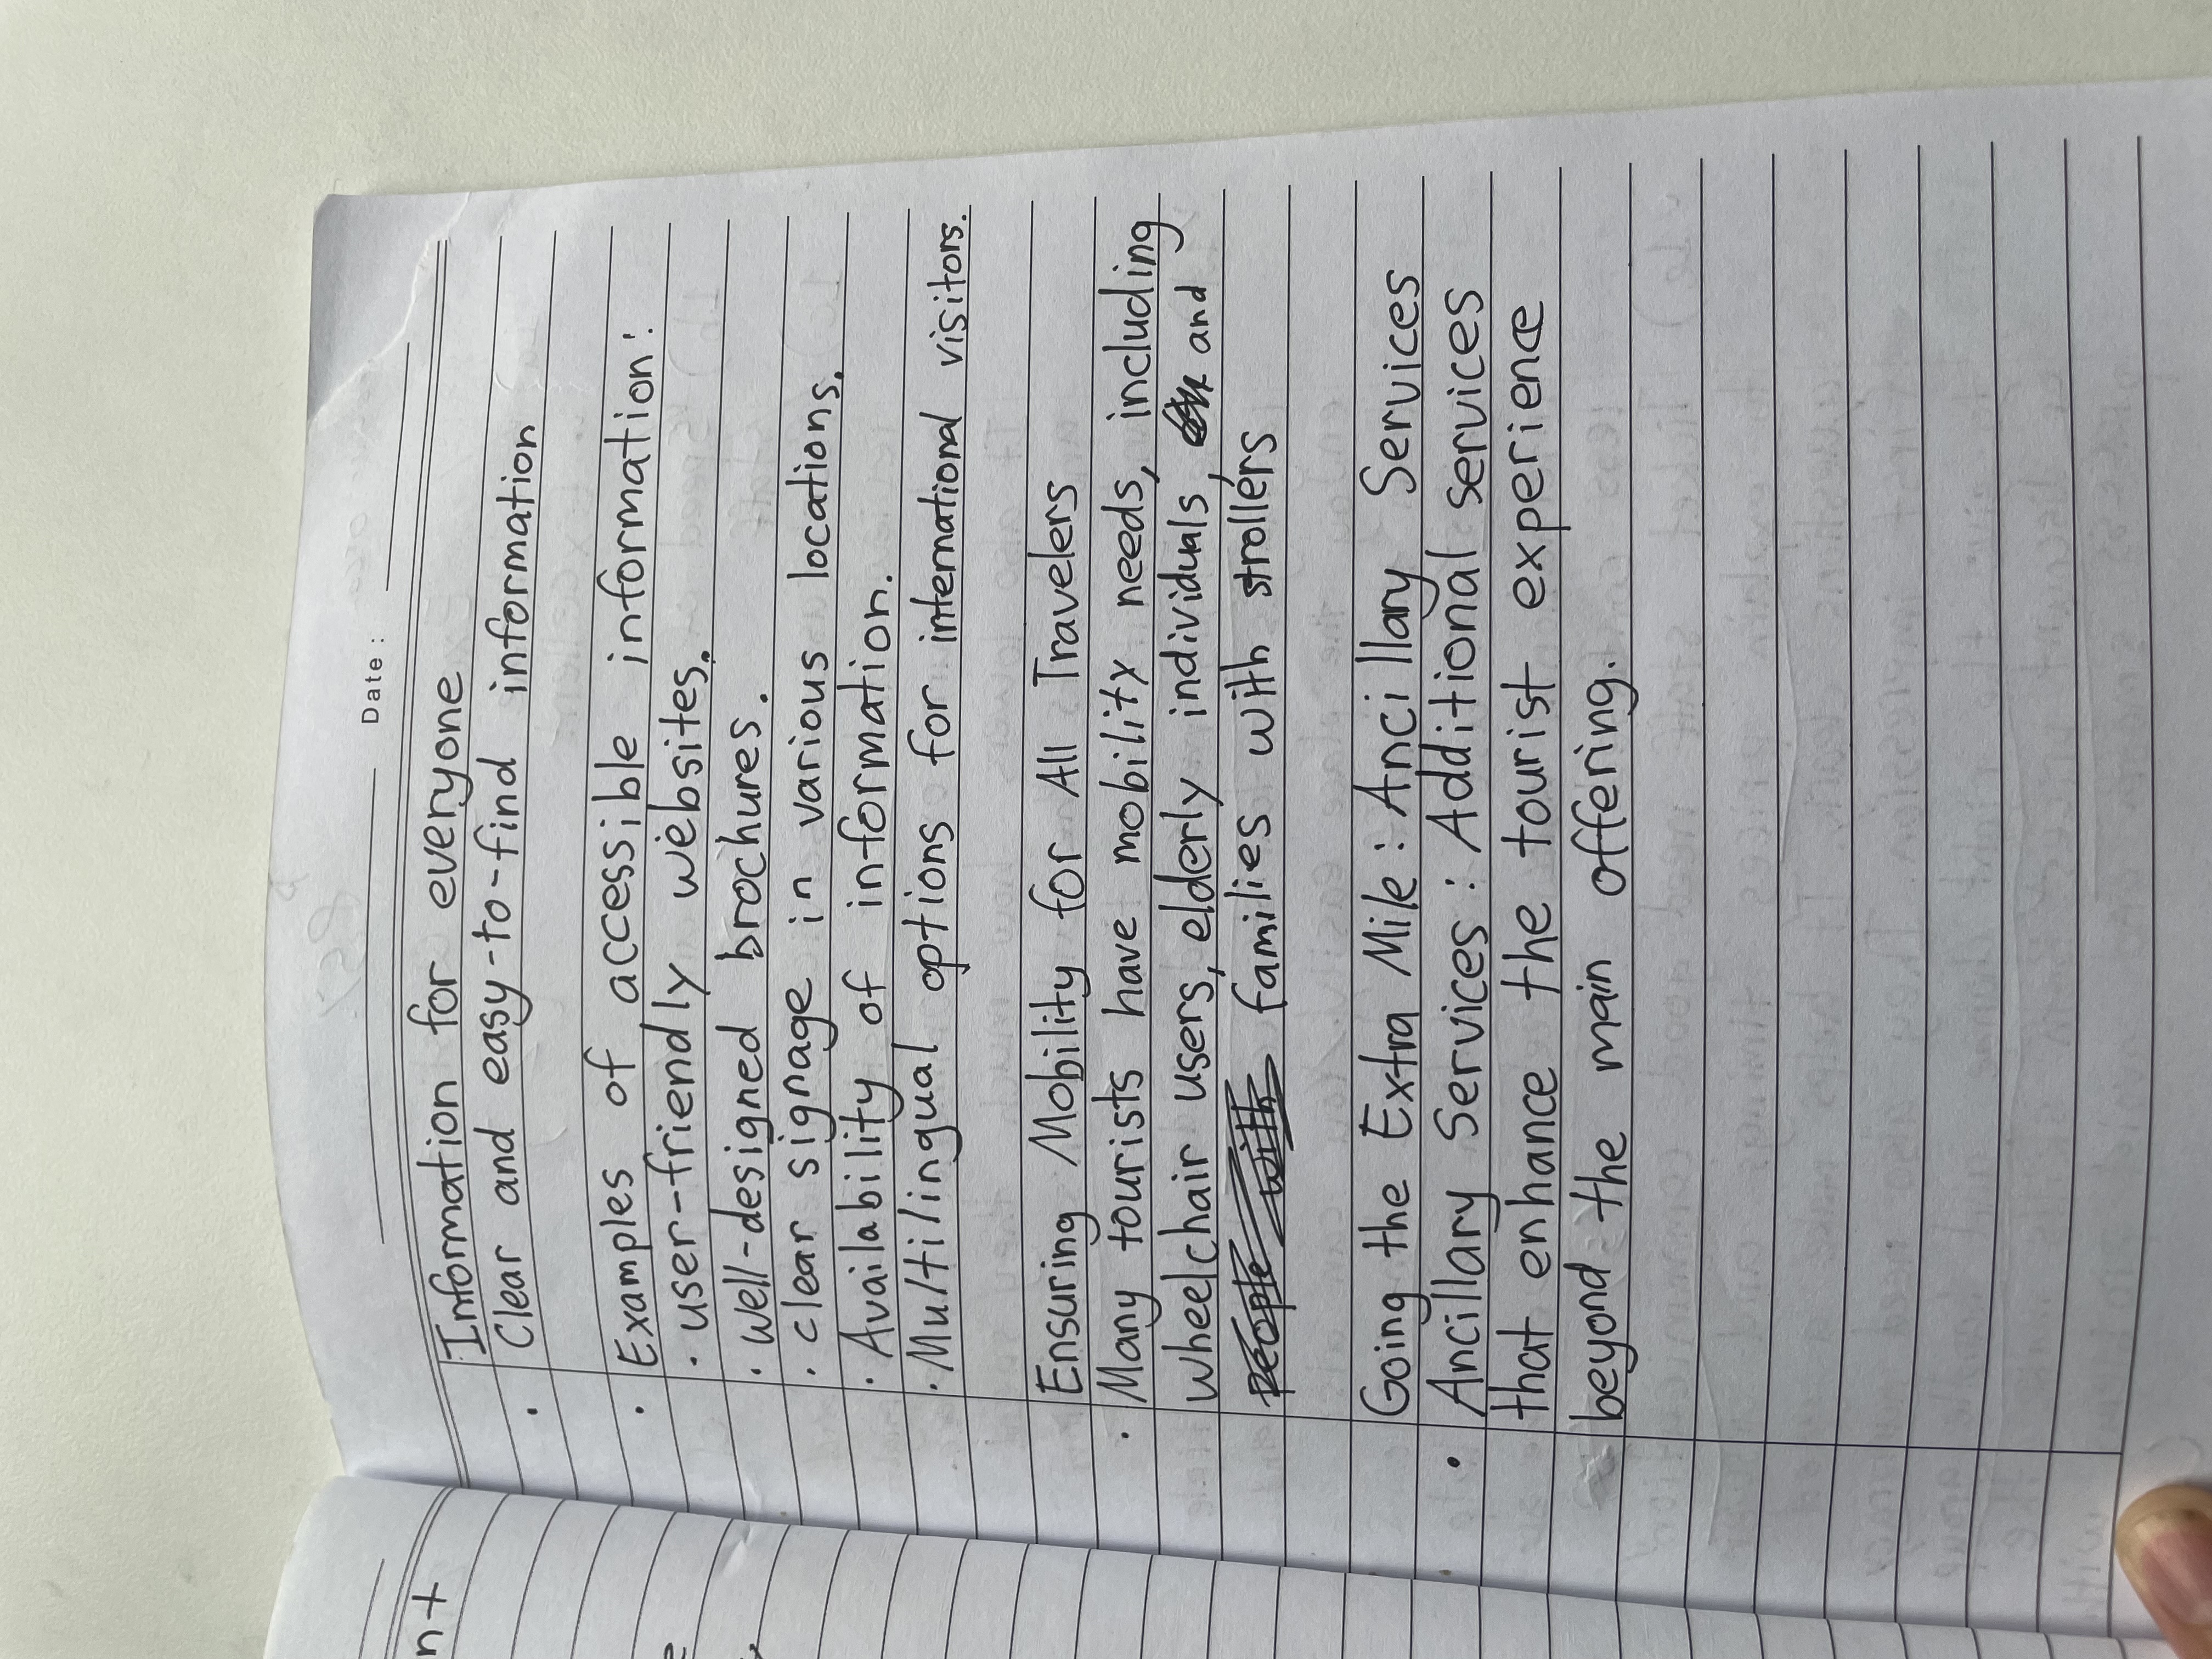 Date:
Information for everyone
• Clear and easy-to-find information
• Examples of accessible information:
• user-friendly websites.
• well-designed brochures.
• clear signage in various locations.
• Availability of information.
• Multilingual options for international visitors.
Ensuring Mobility for All Travelers
• Many tourists have mobility needs, including
wheelchair users, elderly individuals, and
people with families with strollers
Going the Extra Mile: Ancillary Services
• Ancillary Services: Additional services
that enhance the tourist experience
beyond the main offering.